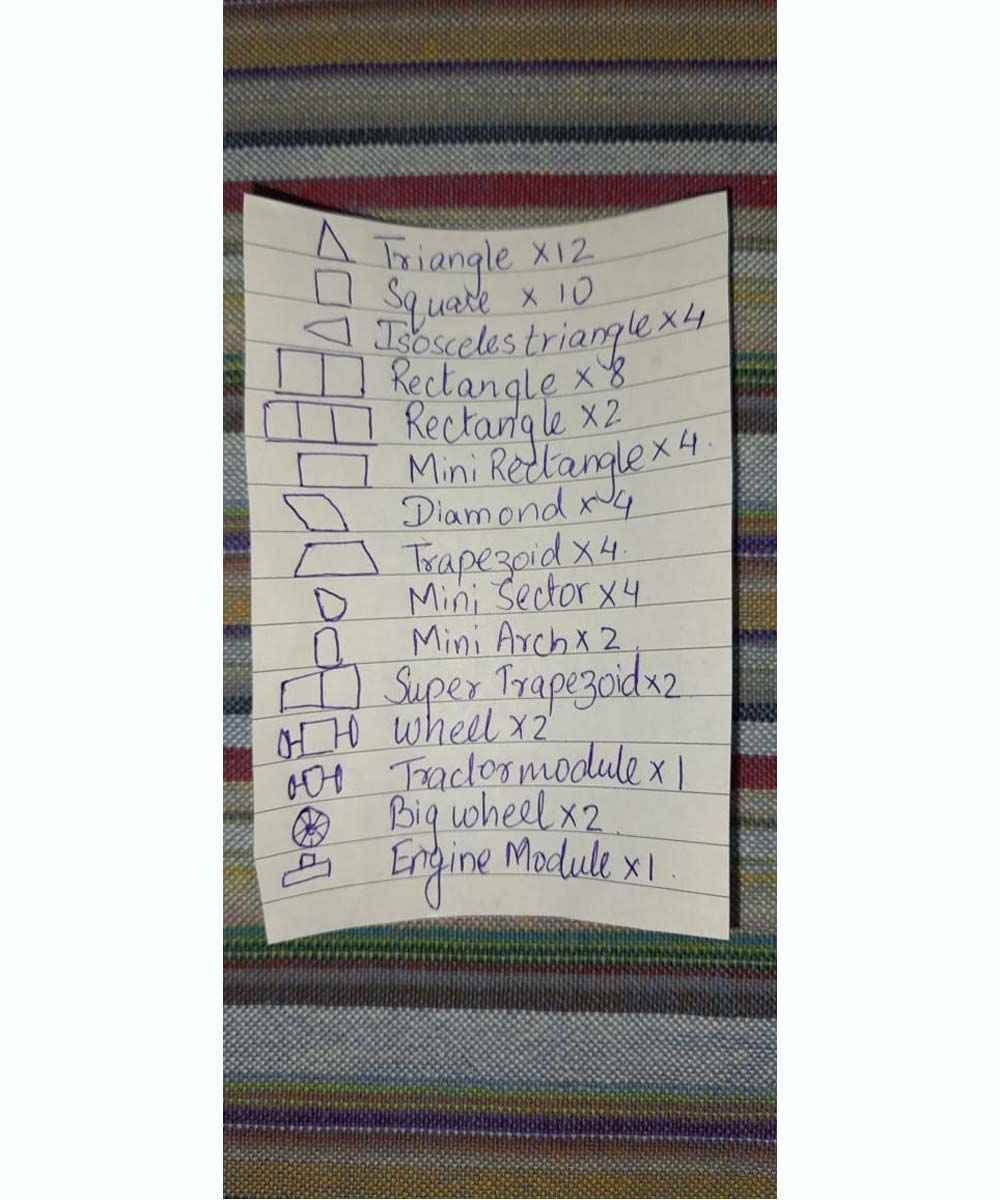 Triangle x12
Square x 10
Isosceles triangle x 4
Rectangle x 8
Rectangle x2
Mini Rectangle x 4.
Diamond x 4
Trapezoid x 4.
Mini Sector x 4
Mini Arch x 2.
Super Trapezoid x2
Wheel x2
Tractor module x 1
Big wheel x 2.
Engine Module x1.